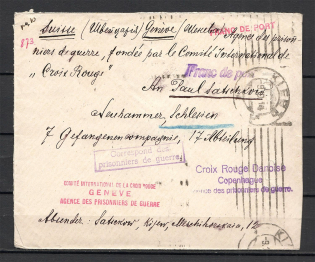 Suisse (Helvezia) Genève
FRANC DE PORT
Agence des prison-
niers de guerre, fondée par le Comité International de
873
„Croix Rouge"
Franc de port
An Paul Satschkow
KIEW
Neuhammer, Schlesien
7 Gefangenencompagnie, 17 Abteilung
Correspond. des
prisonniers de guerre.
Croix Rouge Danoise
Copenhague
des prisonniers de guerre.
COMITÉ INTERNATIONAL DE LA CROIX ROUGE
GENÈVE
AGENCE DES PRISONNIERS DE GUERRE
Absender: Satschkow, Kijew, 12